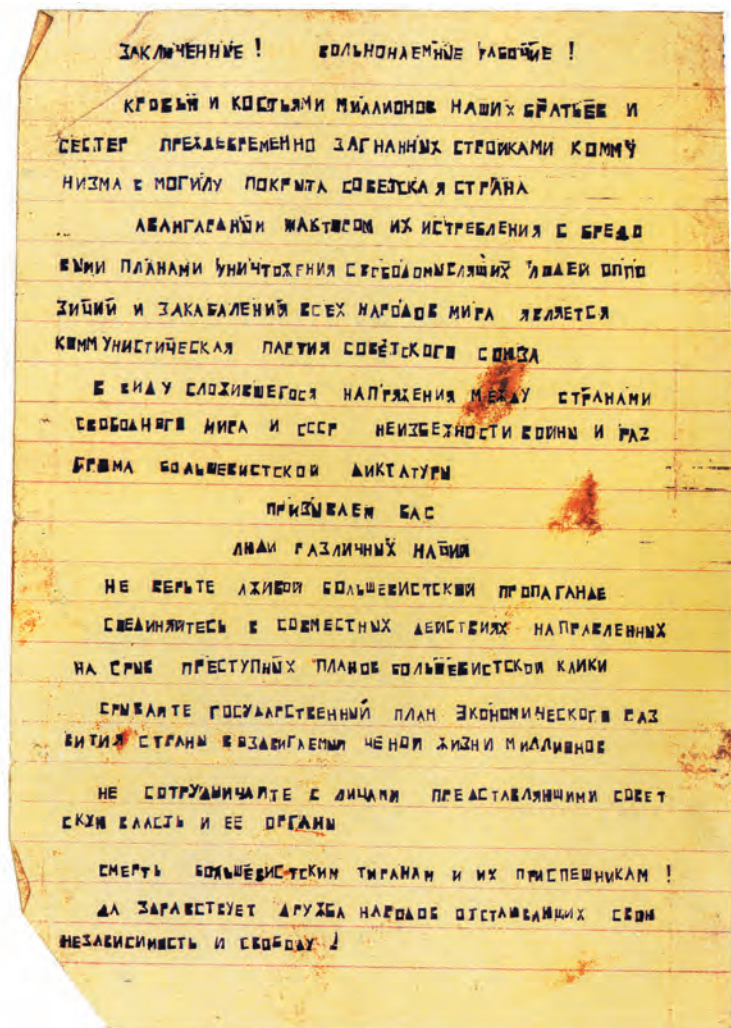 ЗАКЛЮЧЕННЫЕ ! ВОЛЬНОНАЕМНЫЕ РАБОЧИЕ !
КРОВЬЮ И КОСТЬЯМИ МИЛЛИОНОВ НАШИХ БРАТЬЕВ И
СЕСТЕР ПРЕЖДЕВРЕМЕННО ЗАГНАННЫХ СТРОЙКАМИ КОММУ
НИЗМА В МОГИЛУ ПОКРЫТА СОВЕТСКАЯ СТРАНА
АВАНГАРДНЫМ ФАКТОРОМ ИХ ИСТРЕБЛЕНИЯ С БРЕДО
ВЫМИ ПЛАНАМИ УНИЧТОЖЕНИЯ СВОБОДОМЫСЛЯЩИХ ЛЮДЕЙ ОППО
ЗИЦИЙ И ЗАКАБАЛЕНИЯ ВСЕХ НАРОДОВ МИРА ЯВЛЯЕТСЯ
КОММУНИСТИЧЕСКАЯ ПАРТИЯ СОВЕТСКОГО СОЮЗА
В ВИДУ СЛОЖИВШЕГОСЯ НАПРЯЖЕНИЯ МЕЖДУ СТРАНАМИ
СВОБОДНОГО МИРА И СССР НЕИЗБЕЖНОСТИ ВОЙНЫ И РАЗ
ГРОМА БОЛЬШЕВИСТСКОЙ ДИКТАТУРЫ
ПРИЗЫВАЕМ ВАС
ЛЮДИ РАЗЛИЧНЫХ НАЦИЯ
НЕ ВЕРЬТЕ ЛЖИВОЙ БОЛЬШЕВИСТСКОЙ ПРОПАГАНДЕ
СОЕДИНЯЙТЕСЬ В СОВМЕСТНЫХ ДЕЙСТВИЯХ НАПРАВЛЕННЫХ
НА СРЫВ ПРЕСТУПНЫХ ПЛАНОВ БОЛЬШЕВИСТСКОЙ КЛИКИ
СРЫВАЙТЕ ГОСУДАРСТВЕННЫЙ ПЛАН ЭКОНОМИЧЕСКОГО РАЗ
ВИТИЯ СТРАНЫ ВОЗДВИГАЕМЫЙ ЦЕНОЙ ЖИЗНИ МИЛЛИОНОВ
НЕ СОТРУДНИЧАЙТЕ С ЛИЦАМИ ПРЕДСТАВЛЯЮЩИМИ СОВЕТ
СКУЮ ВЛАСТЬ И ЕЕ ОРГАНЫ
СМЕРТЬ БОЛЬШЕВИСТСКИМ ТИРАНАМ И ИХ ПРИСПЕШНИКАМ !
ДА ЗДРАВСТВУЕТ ДРУЖБА НАРОДОВ ОТСТАИВАЮЩИХ СВОЮ
НЕЗАВИСИМОСТЬ И СВОБОДУ !